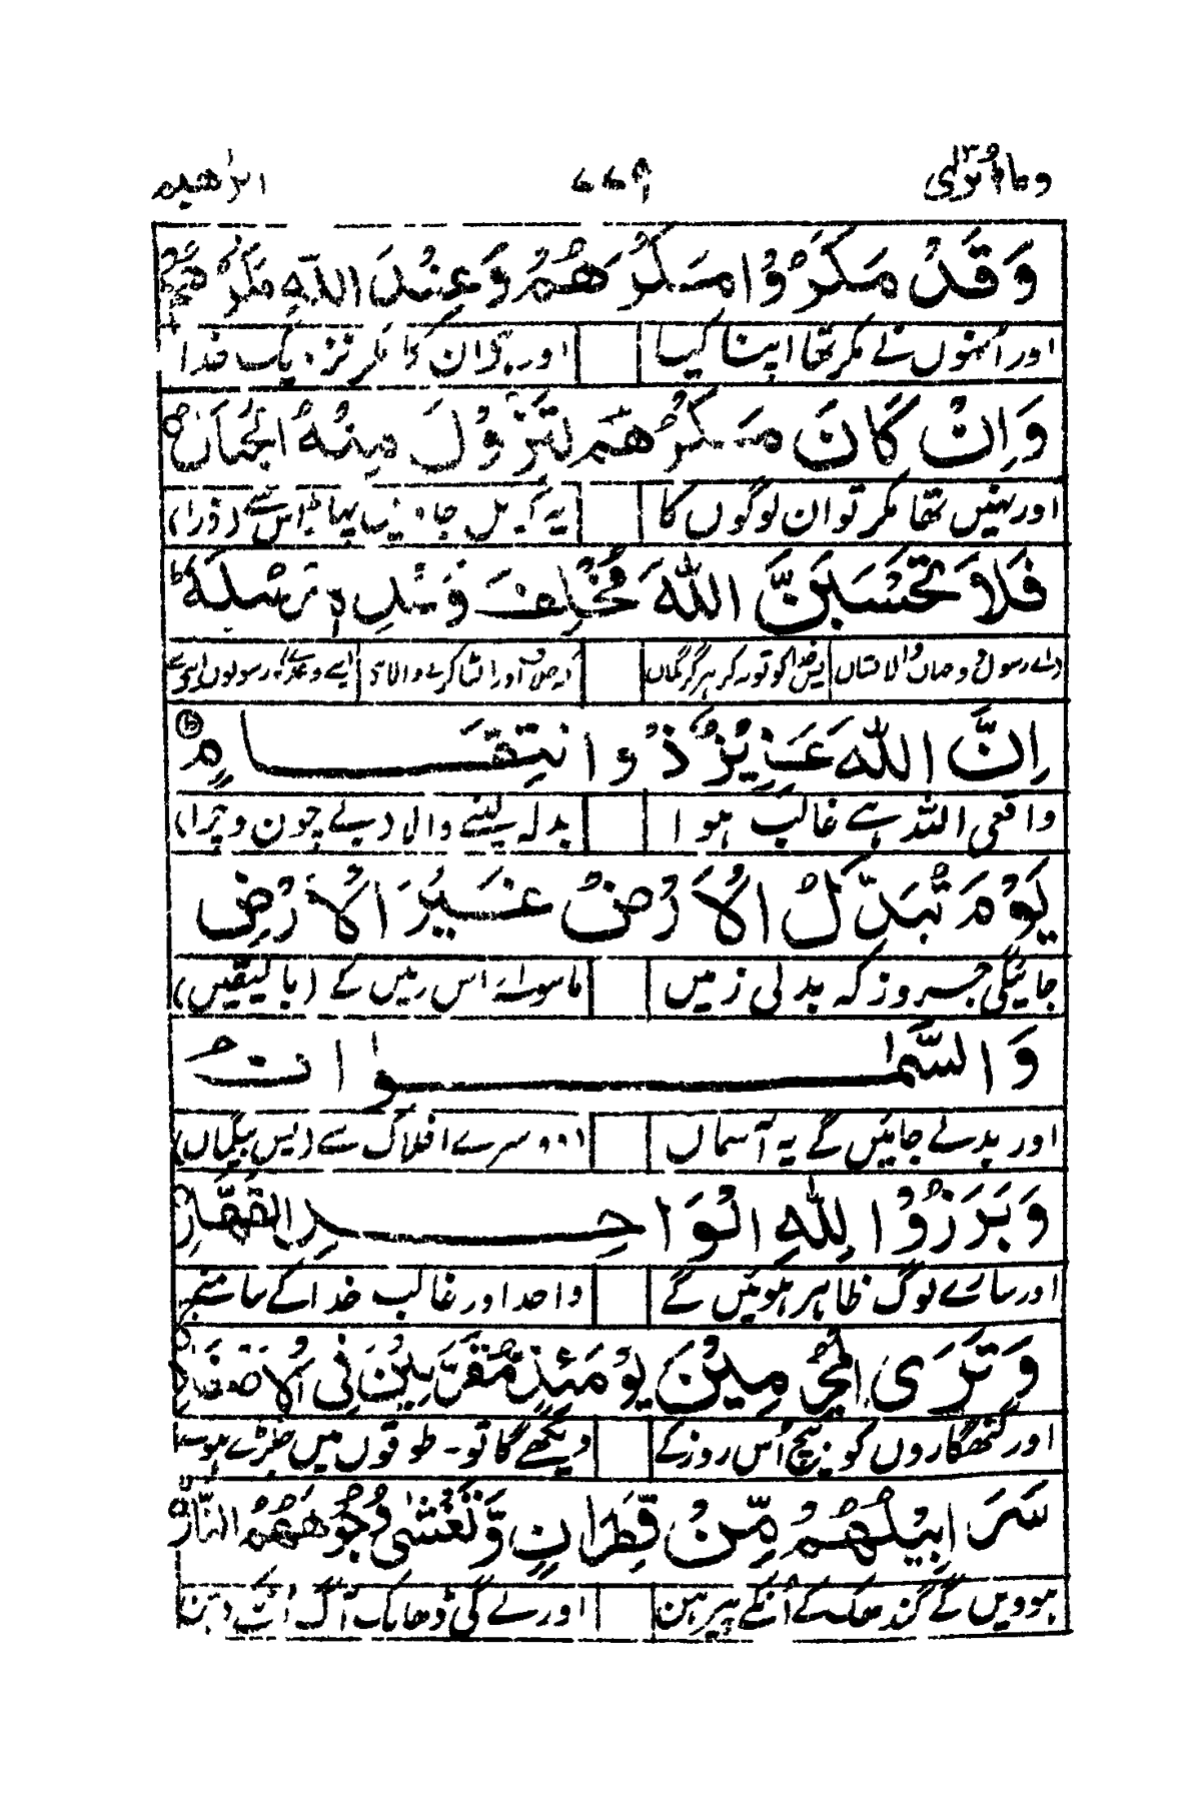 وما ابرئ ۱۳ ۷۷۹ ابراهيم
وَقَدْ مَكَرُوْا مَكْرَهُمْ وَعِنْدَ اللّٰهِ مَكْرُهُمْ
اور اُنہوں نے مکر تھا اپنا کیا اور ان کا مکر نزدیک خدا
وَاِنْ كَانَ مَكْرُهُمْ لِتَزُوْلَ مِنْهُ الْجِبَالُ
اور نہیں تھا مکر تو ان لوگوں کا یہ کہ ٹل پہاڑ اس سے (ذرا)
فَلَا تَحْسَبَنَّ اللّٰهَ مُخْلِفَ وَعْدِهٖ رُسُلَهٗ ط
خدا کو تو نہ کر ہرگز گماں
اِنَّ اللّٰهَ عَزِيْزٌ ذُو انْتِقَامٍ
واقعی اللہ ہے غالب ہوا بدلہ لینے والا (بے چون وچرا)
يَوْمَ تُبَدَّلُ الْاَرْضُ غَيْرَ الْاَرْضِ
جائیگی جس روز کہ بدلی زمیں ماسوائے اس زمیں کے (بالیقیں)
وَالسَّمٰوٰتُ
اور بدلے جائیں گے یہ آسماں دوسرے افلاک سے (بس بیگماں)
وَبَرَزُوْا لِلّٰهِ الْوَاحِدِ الْقَهَّارِ
اور سارے لوگ ظاہر ہوئیں گے واحد اور غالب خدا کے سامنے
وَتَرَى الْمُجْرِمِيْنَ يَوْمَئِذٍ مُّقَرَّنِيْنَ فِى الْاَصْفَادِ
اور گنہگاروں کو بیچ اُس روز کے دیکھے گا تو۔ طوقوں میں جکڑے
سَرَابِيْلُهُمْ مِّنْ قَطِرَانٍ وَّتَغْشٰى وُجُوْهَهُمُ النَّارُ
ہوویں گے گندھک کے اُنکے پیرہن اور لے گی ڈھانک آگ